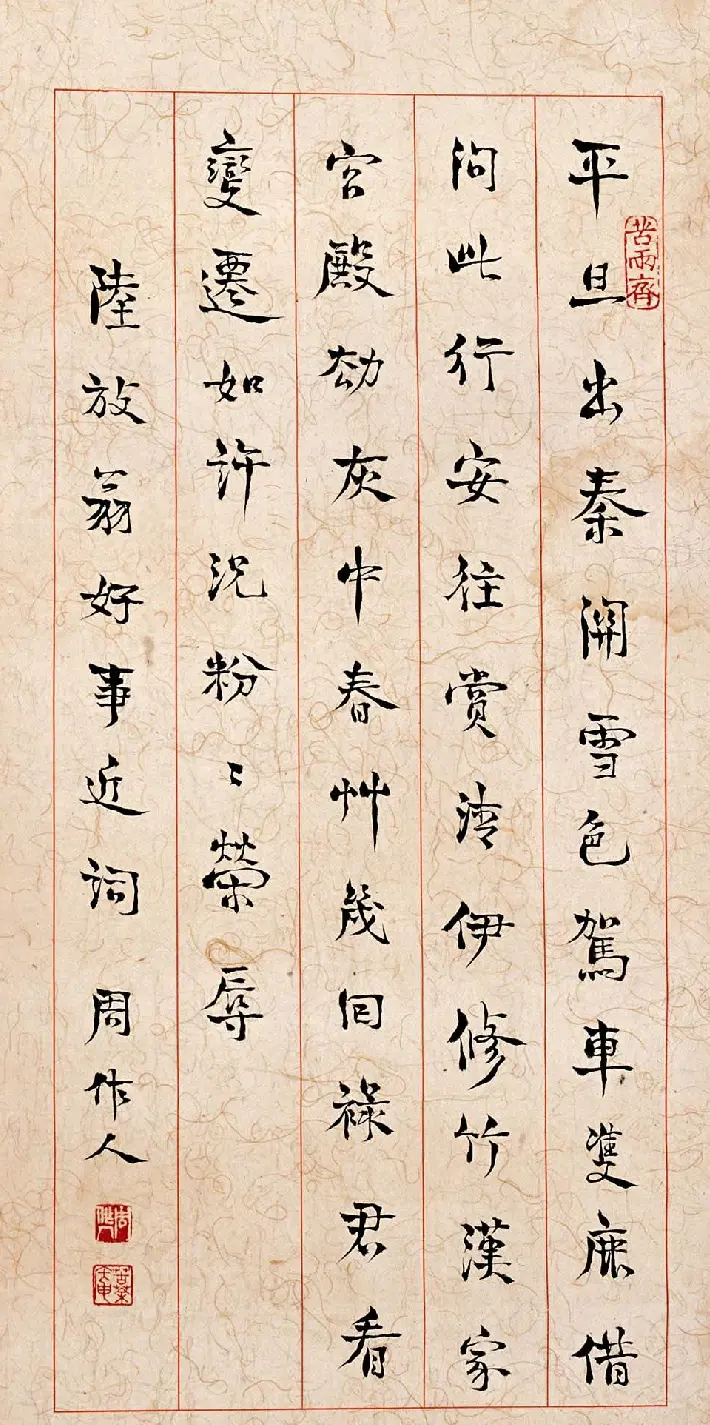 平旦出秦關雪色駕車雙鹿借
問此行安往賞清伊修竹漢家
宮殿劫灰中春艸幾回祿君看
變遷如許況粉〻榮辱
陸放翁好事近詞 周作人
苦雨齋